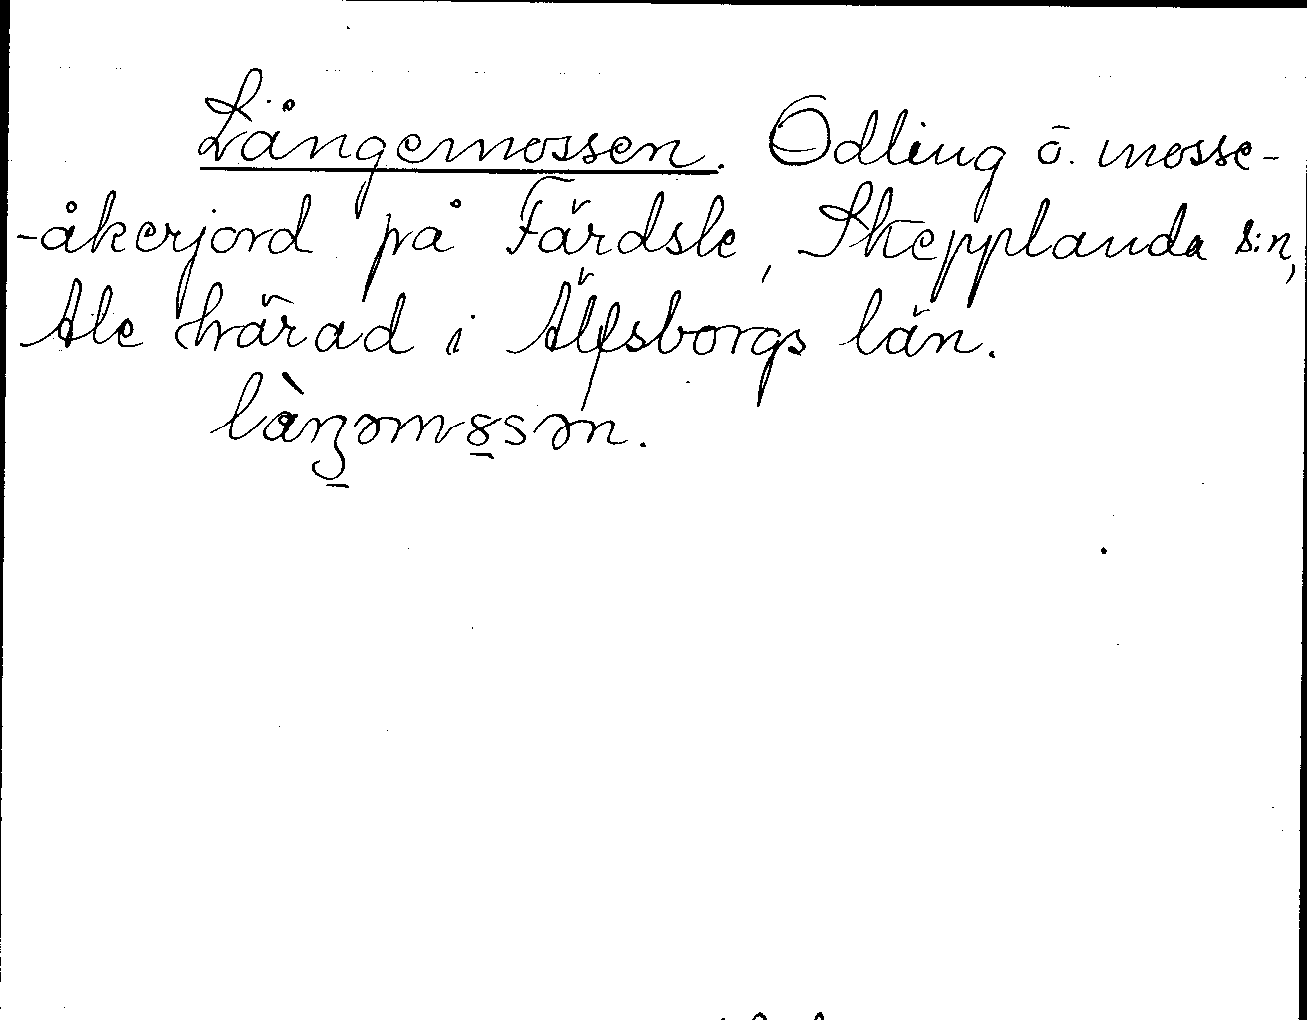 Långemossen. Odling ō. mosse-
-åkerjord på Färdsle, Skepplanda s:n,
Ale härad i Älfsborgs län.